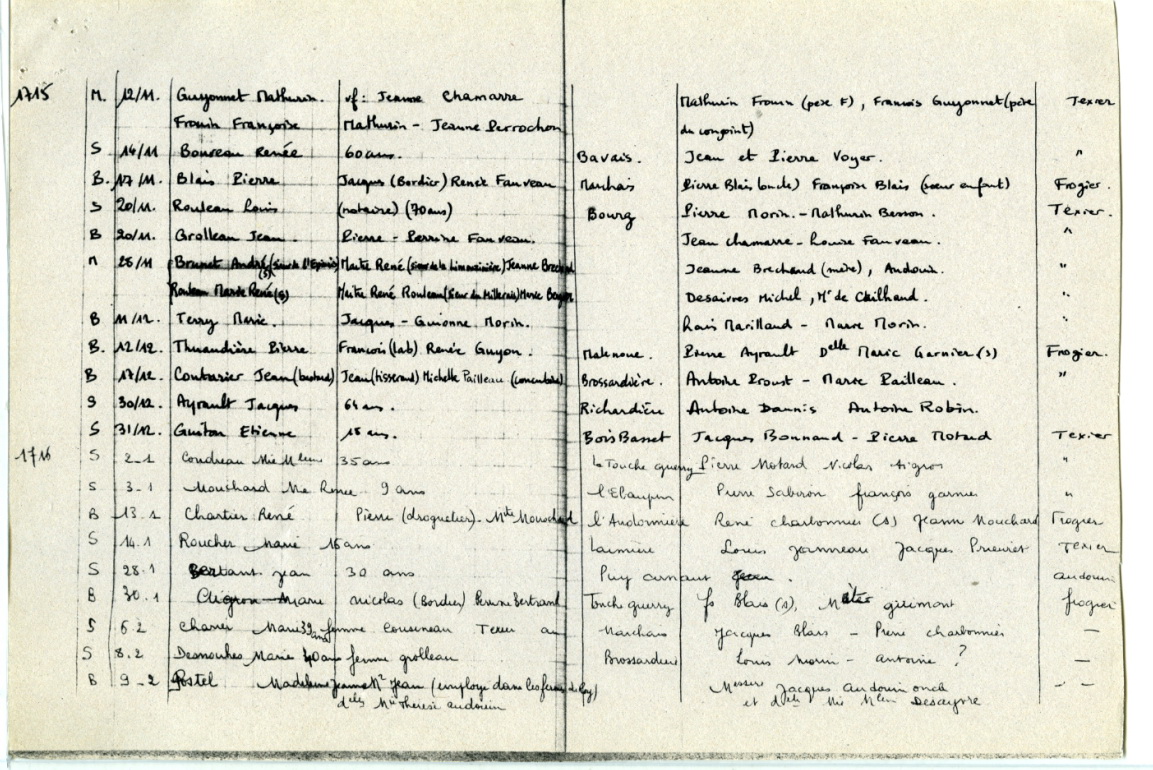 1715 M. 12/11. Guyonnet Mathurin. vf: Jeanne Chamarre Mathurin Frouin (père F), François Guyonnet (père Texier
Frouin Françoise Mathurin - Jeanne Perrochon du conjoint)
S 14/11 Boureau Renée 60 ans. Bavais. Jean et Pierre Voyer. "
B. 17/11. Blais Pierre Jacques (Bordier) Renée Fauveau Marchais Pierre Blais (oncle) Françoise Blais (sœur enfant) Frogier.
S 20/11. Rouleau Louis (notaire) (70 ans) Bourg Pierre Morin. - Mathurin Besson. Texier.
B 20/11. Grolleau Jean. Pierre - Perrine Fauveau. Jean Chamarre - Louise Fauveau. "
M 28/11 Brunet André (Sieur de l'Epinis) (s) Maitre René (Sieur de la Limouzinière) Jeanne Brechaud Jeanne Brechaud (mère), Audouin. "
Rouleau Marie Renée (s) Maitre René Rouleau (Sieur du ) Marie Desaivres Michel, Mr de Chilhaud. "
B 11/12. Terry Marie. Jacques - Guionne Morin. Marilland - Marie Morin. "
B. 12/12. Thuaudière Pierre François (lab) Renée Guyon. Malenoue. Pierre Ayrault Delle Marie Garnier (s) Frogier.
B 17/12. Couturier Jean (batard) Jean (tisserand) Michelle Pailleau Brossardière. Antoine Proust - Marie Pailleau. "
S 30/12. Ayrault Jacques 64 ans. Richardière Antoine Dannis Antoine Robin.
S 31/12. Guston Etienne 18 ans. Bois Basset Jacques Bonnand - Pierre Motard Texier
1716 S 2-1 Coudreau Mie Mleine 35 ans la Touche guerry Pierre Motard Nicolas "
S 3-1 Mouchard Me Renee 9 ans Pierre Saboron françois garnier "
B 13.1 Chartier René Pierre (droguetier). Mte Mouchard l'Audonnière René charbonnier (s) Jeanne Mouchard Frogier
S 14.1 Roucher Marie 16 ans Louis Jonneau Jacques Texier
S 28.1 jean 30 ans Puy arnaut . audouin
B 30.1 Cligron Marie nicolas (Bordier) Perrine Bertrand Touche guerry fs Blais (s), frogier
S 6.2 Charrier Marie 39 ans femme cousineau Marchais Jacques Blais - Pierre charbonnier —
S 8.2 Desnouhes Marie 40 ans femme grolleau Brossardiere Louis Morin - antoine ? —
B 9-2 Postel Madeleine Jeanne Mr Jean (employé dans les fermes du Roy) Messire Jacques audouin oncle - -
delle Me Therese audouin et delle Mie Mleine Desayvre